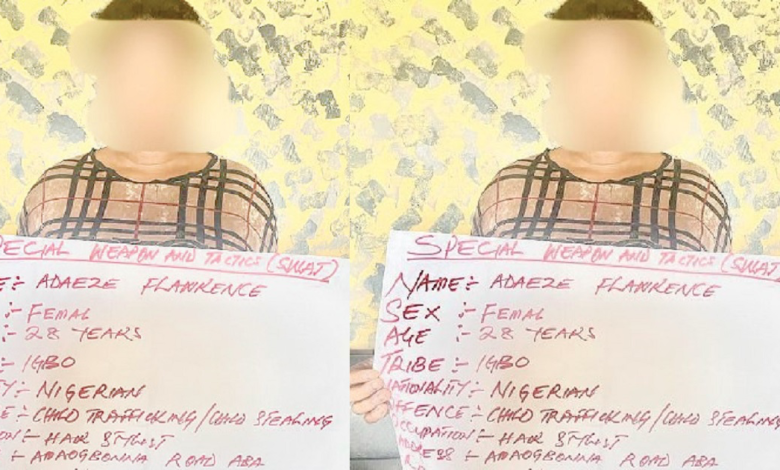 PECIAL WEAPON AND TACTICS (SWAT)
E :- ADAEZE FLAWRENCE
:- FEMAL
:- 28 YEARS
:- IGBO
TY :- NIGERIAN
E :- CHILD TRAFFICKING/CHILD STEALING
ON :- HAIR STYLIST
:- AMAOGBONNA ROAD ABA
SPECIAL WEAPON AND TACTICS (SWAT
NAME :- ADAEZE FLAWRENCE
SEX :- FEMAL
AGE :- 28 YEARS
TRIBE :- IGBO
NATIONALITY :- NIGERIAN
OFFENCE :- CHILD TRAFFICKING/CHILD STEALING
OCCUPATION :- HAIR STYLIST
ADDRESS :- AMAOGBONNA ROAD ABA